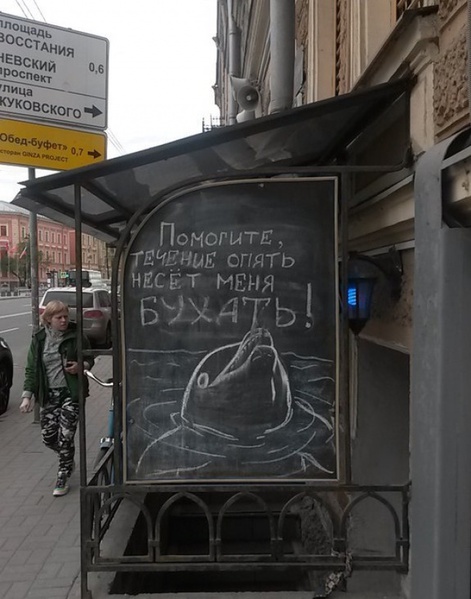 площадь
ВОССТАНИЯ
НЕВСКИЙ
проспект
0,6
улица
ЖУКОВСКОГО
Обед-буфет» 0,7
ресторан GINZA PROJECT
Помогите,
течение опять
несёт меня
БУХАТЬ!